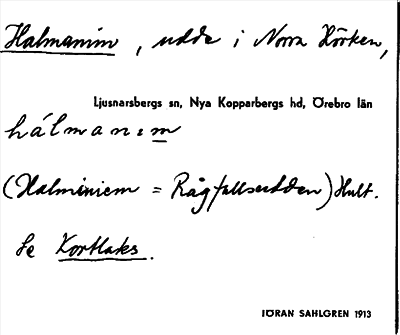 Halmanim, udde i Norra Hörken,
Ljusnarsbergs sn, Nya Kopparbergs hd, Örebro län
hálmanım
(Halminiem = Rågfallsudden) Hult.
Se Kortlaks.
JÖRAN SAHLGREN 1913